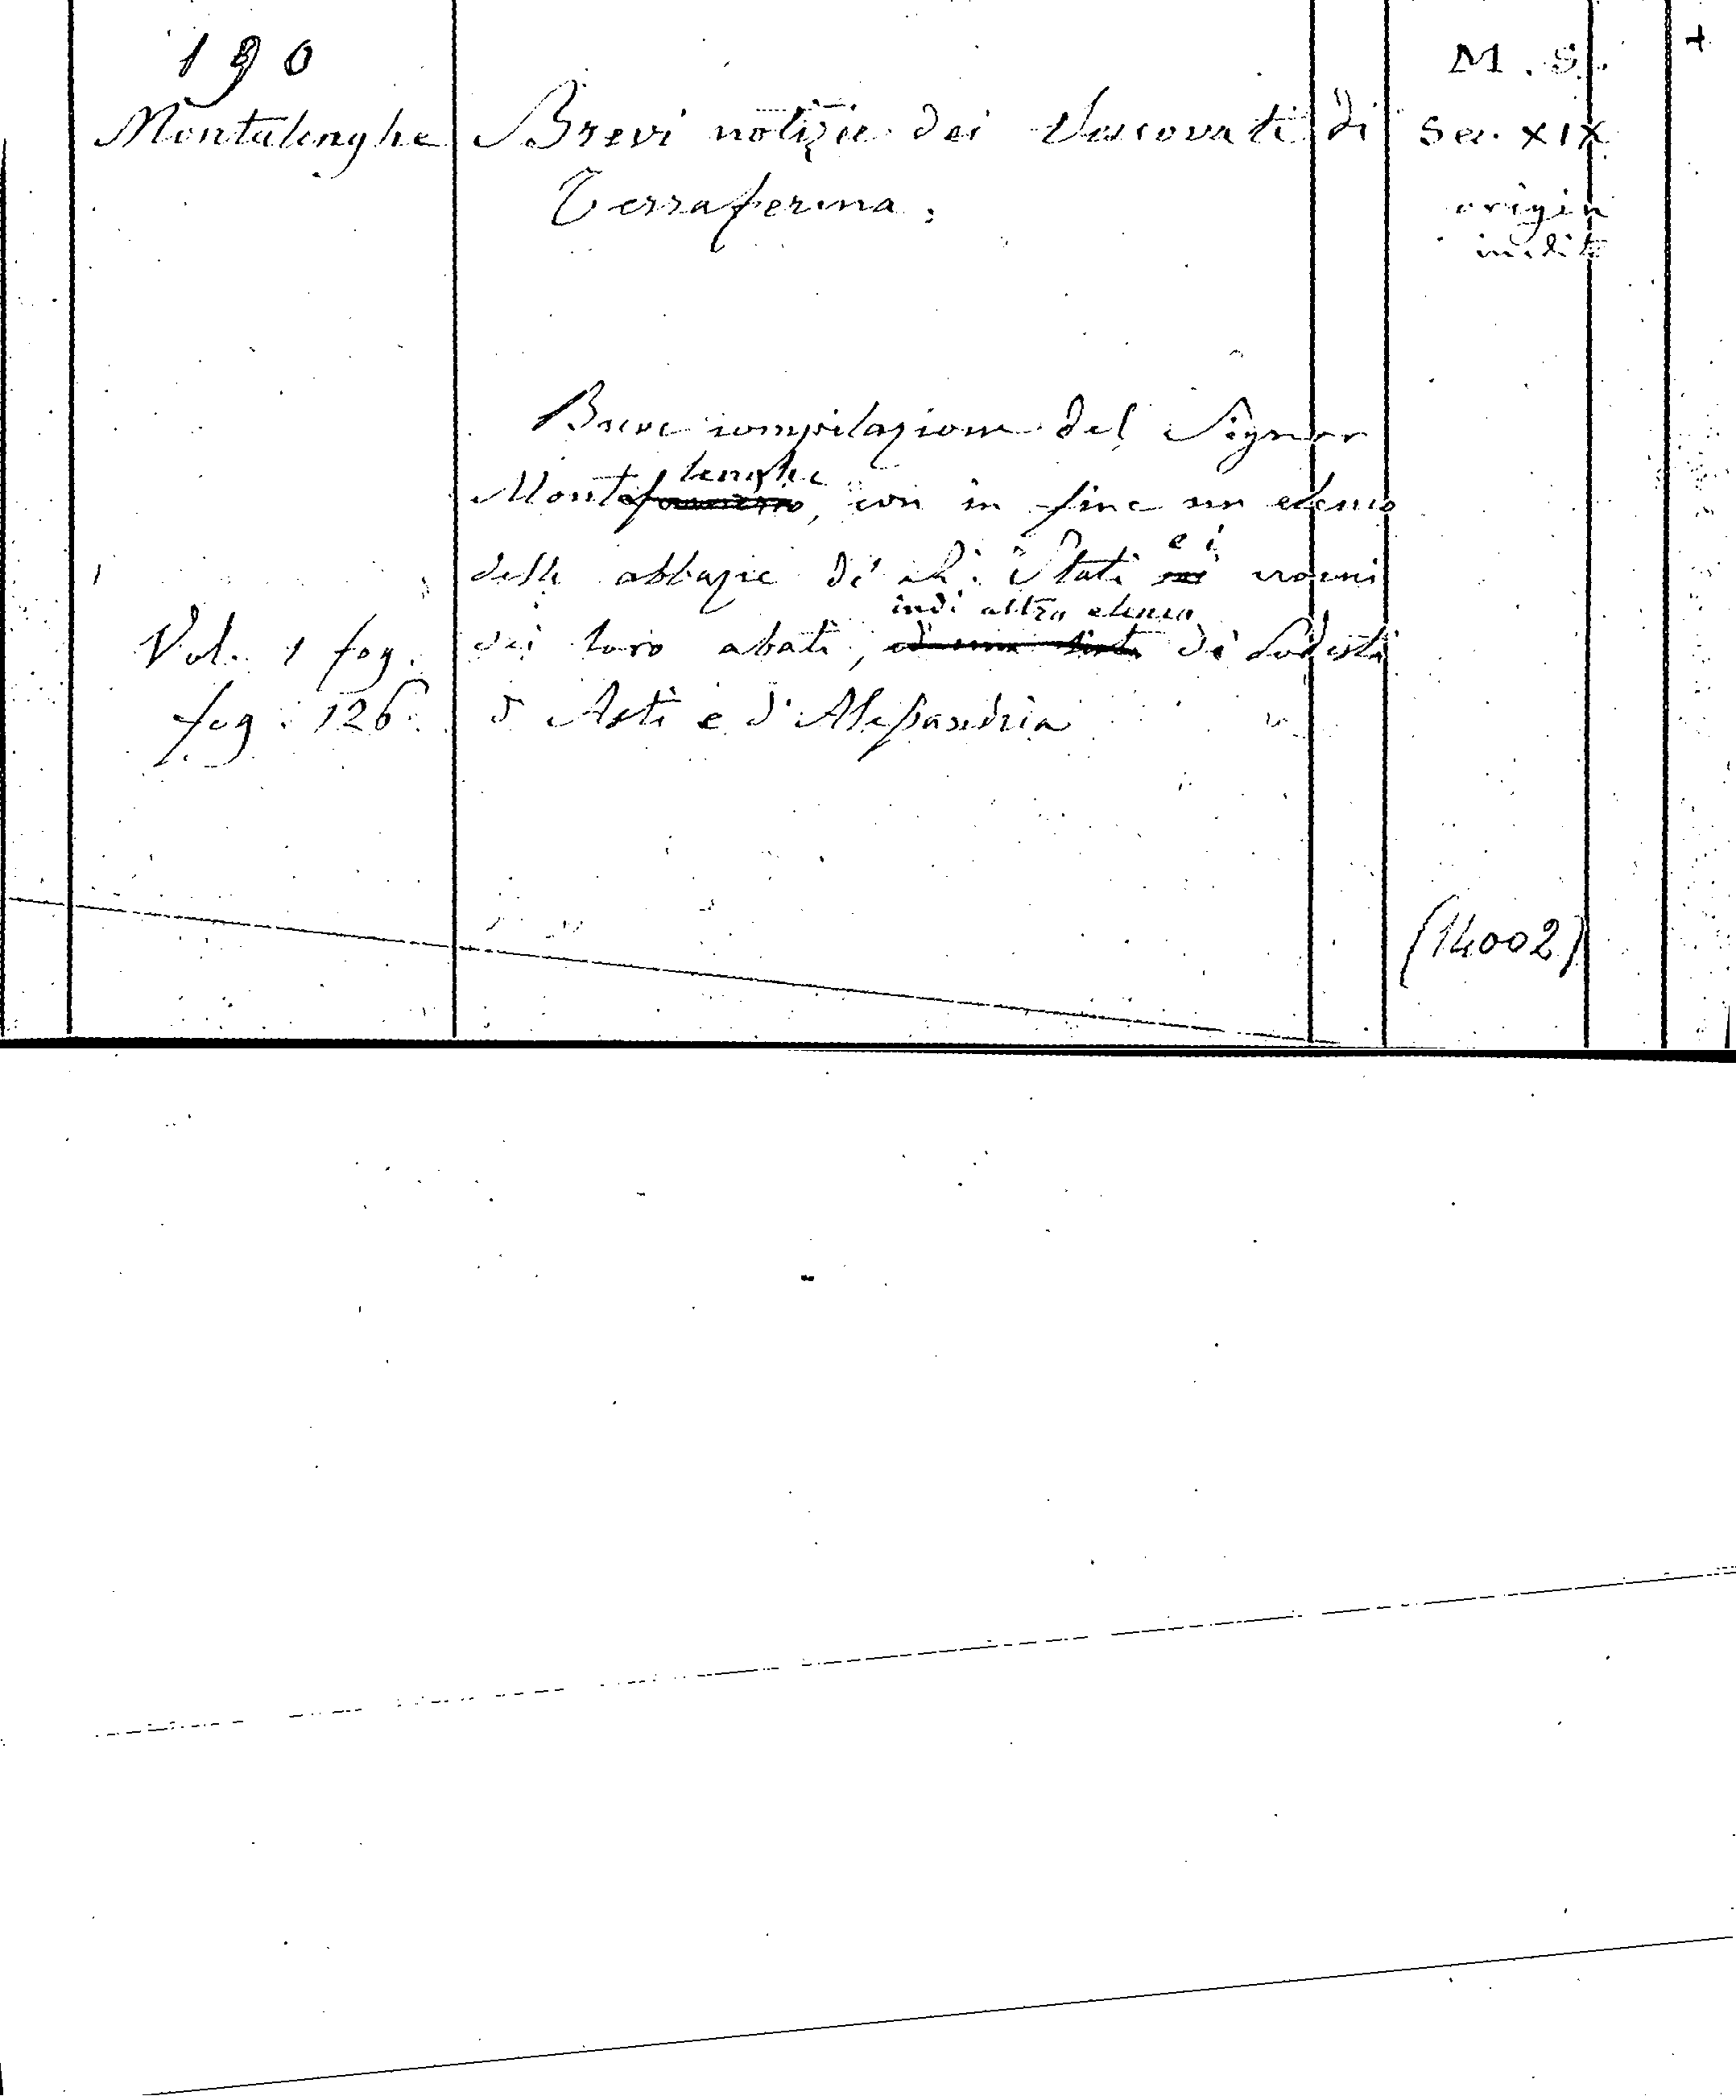 190
Montalenghe
Brevi notizie dei Vescovati di
Terraferma.
M. S.
Sec. XIX
origin
inedito
+
Breve compilazione del Signor
lenghe
Monta, con in fine un elenco
e i
delle abbazie di Stati nomi
indi altro elenco
dei loro abati, di Podestà
d'Asti e d'Alessandria
Vol. 1 fog.
fog. 126.
(14002)